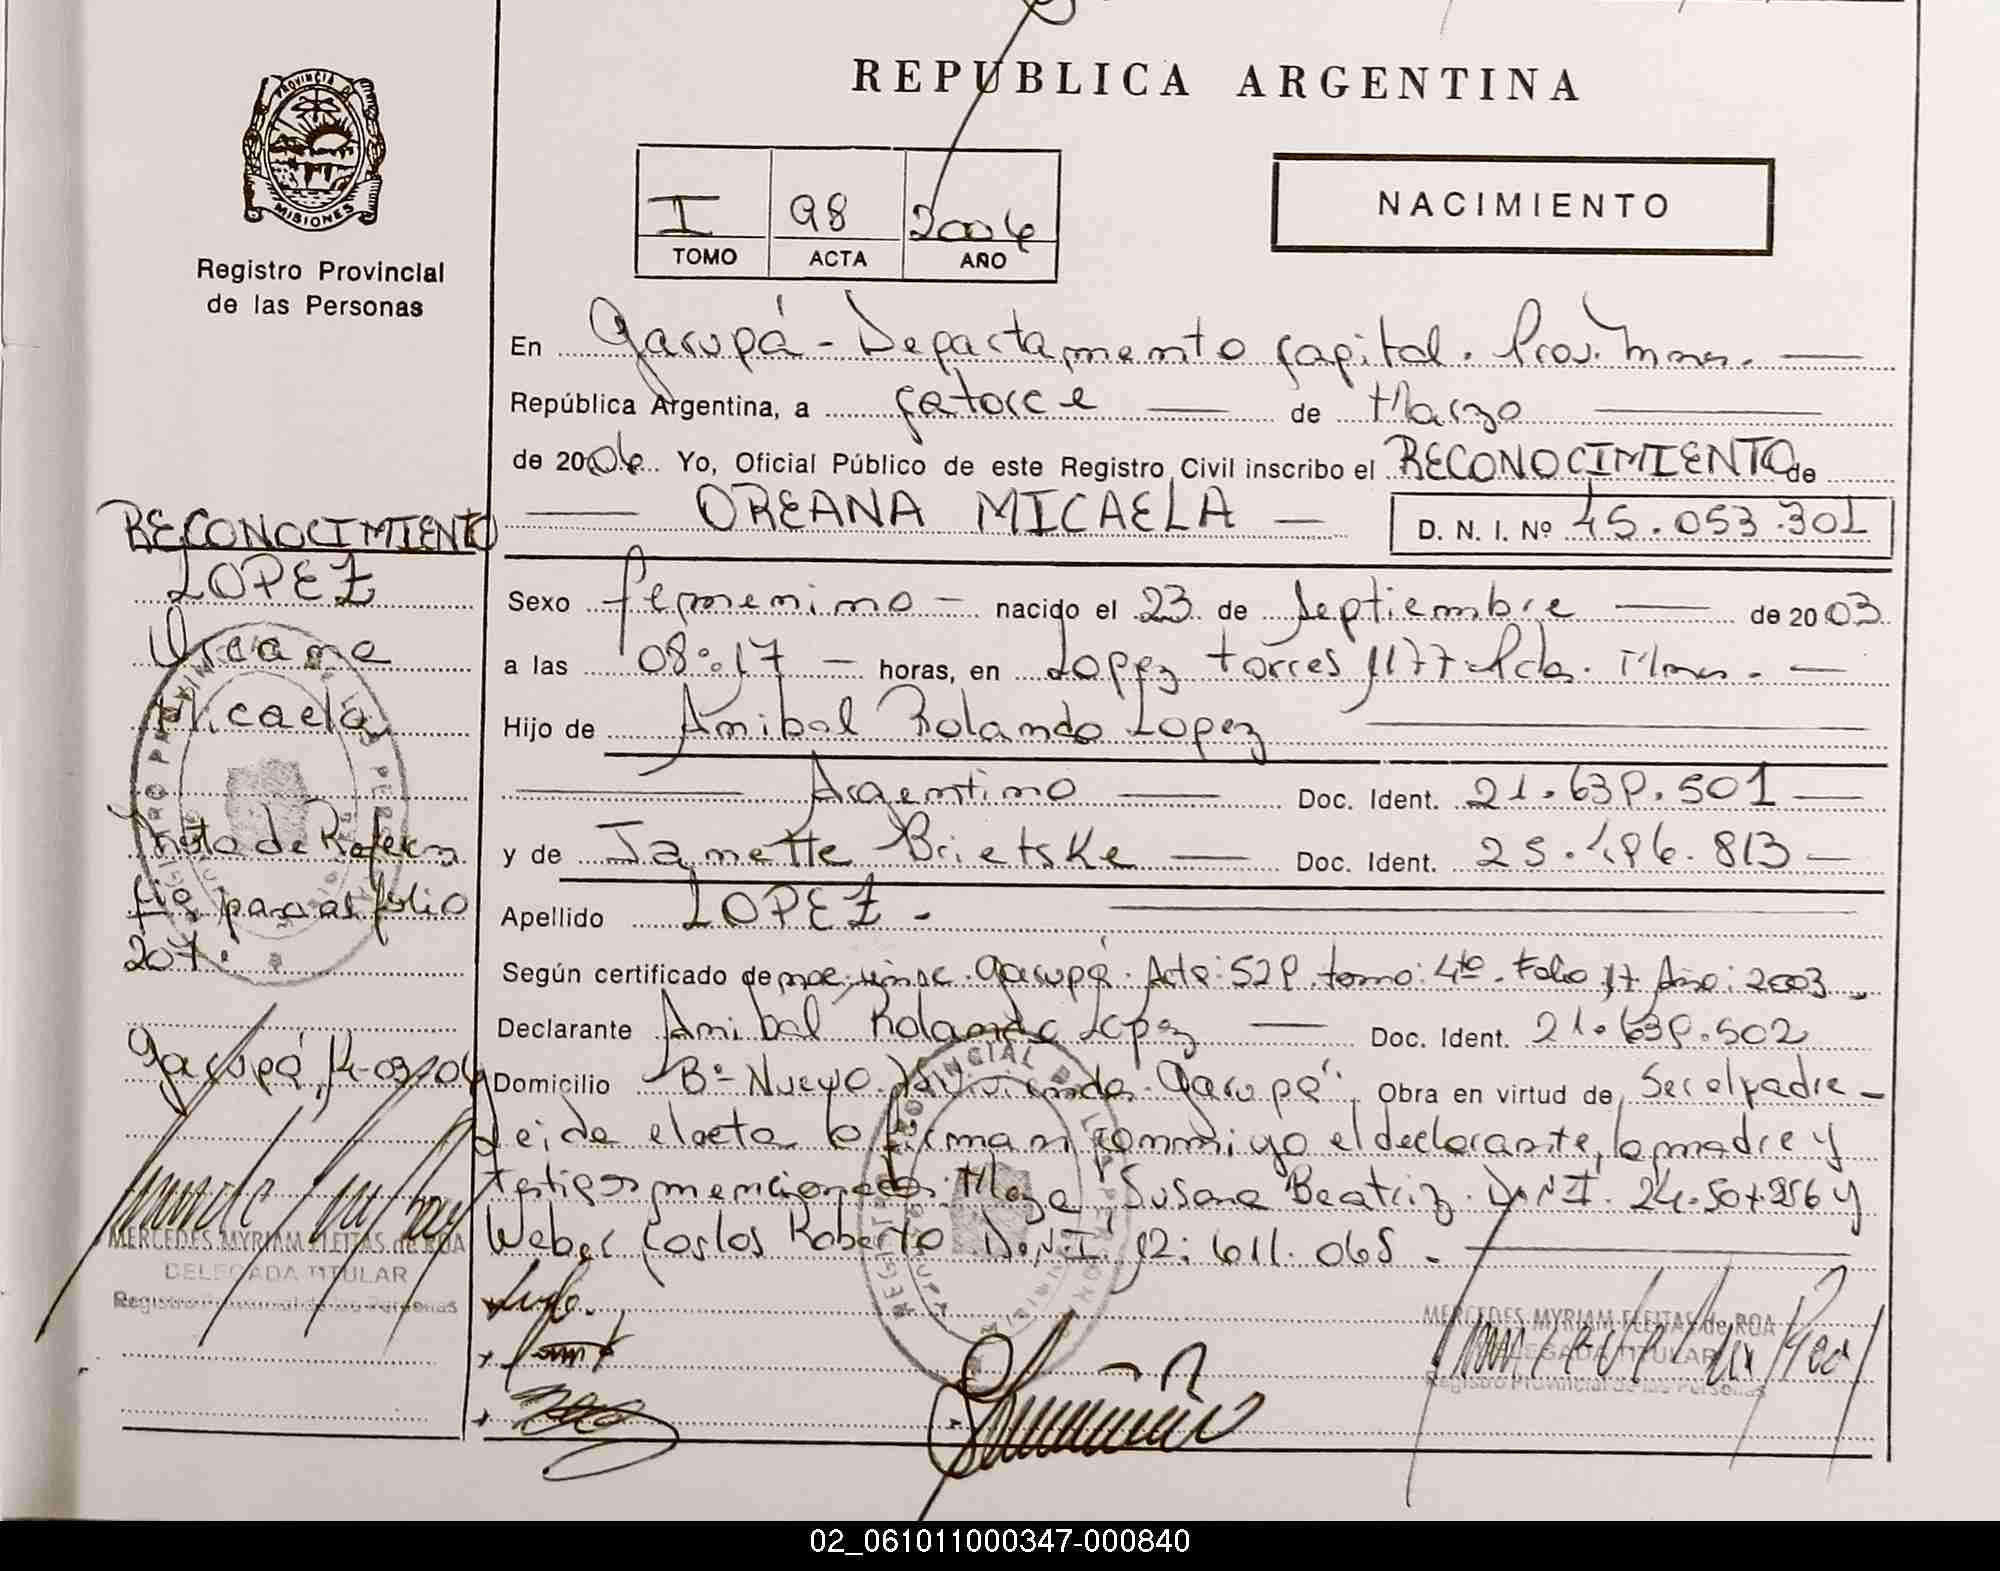 REPUBLICA ARGENTINA
PROVINCIA D
MISIONES
Registro Provincial
de las Personas
I 98 2004
TOMO ACTA AÑO
NACIMIENTO
En Garupá - Departamento Capital. Prov. Mnes. —
República Argentina, a catorce — de Marzo —
de 2004 Yo, Oficial Público de este Registro Civil inscribo el RECONOCIMIENTO de
— OREANA MICAELA — D. N. I. Nº 45.053.301
Sexo femenino — nacido el 23 de Septiembre — de 2003
a las 08:17 — horas, en Lopez Torres 1177 - Pdas. Mnes. —
Hijo de Anibal Rolando Lopez —
— Argentino — Doc. Ident. 21.639.501 —
y de Janette Brietske — Doc. Ident. 25.186.813 —
Apellido LOPEZ. —
Según certificado de Garupá. Acta: 529. tomo: 4to. Folio 17 Año: 2003 -
Declarante Anibal Rolando Lopez — Doc. Ident. 21.639.502
Domicilio Bº Nuevo. Garupá. Obra en virtud de Ser el padre -
Leida el acta la firman conmigo el declarante, la madre y
testigos mencionados. Susana Beatriz. D.N.I. 24.504.256 y
Weber Carlos Roberto D.N.I. 12.611.065. —
RECONOCIMIENTO
LOPEZ
Oreana
Micaela
Nota de Referen
cia para al folio
207.
Garupá, 14-03-04
MERCEDES MYRIAM FLEITAS de ROA
DELEGADA TITULAR
Registro Provincial de las Personas
MERCEDES MYRIAM FLEITAS de ROA
DELEGADA TITULAR
Registro Provincial de las Personas
02_061011000347-000840